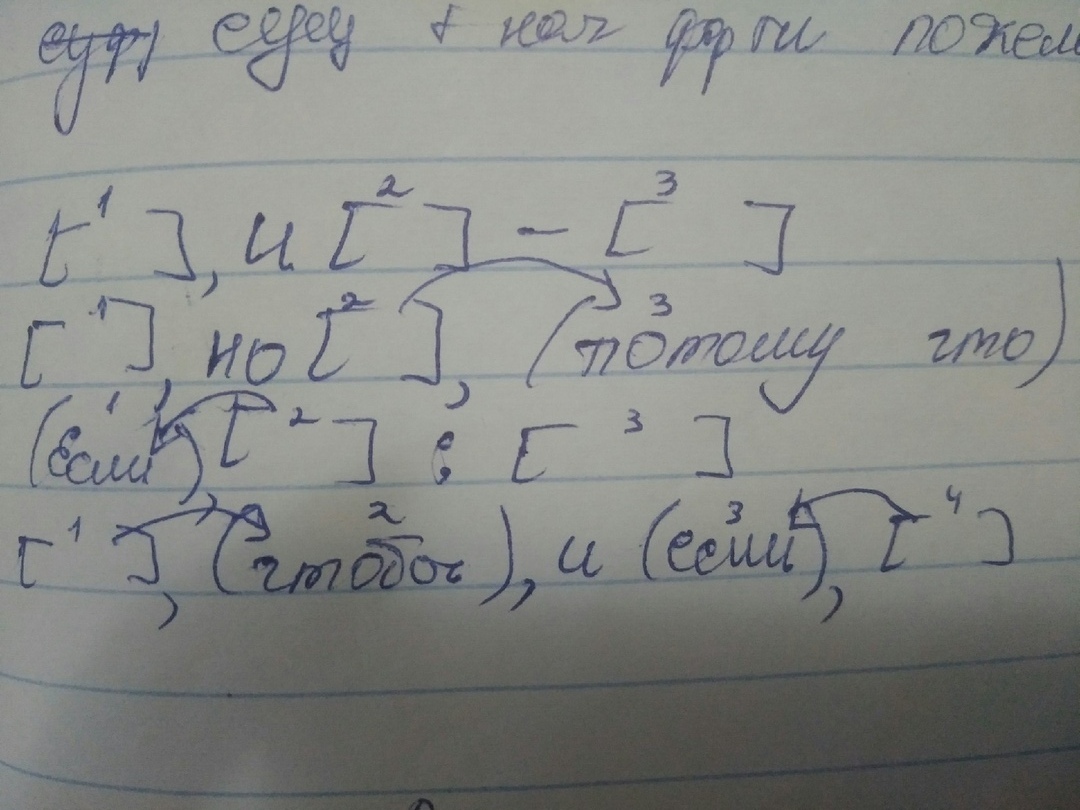 + нач формы пожел
[ 1 ], и [ 2 ] - [ 3 ]
[ 1 ], но [ 2 ], ( 3 потому что)
( 1 если), [ 2 ] : [ 3 ]
[ 1 ], ( 2 чтобы), и ( 3 если), [ 4 ]